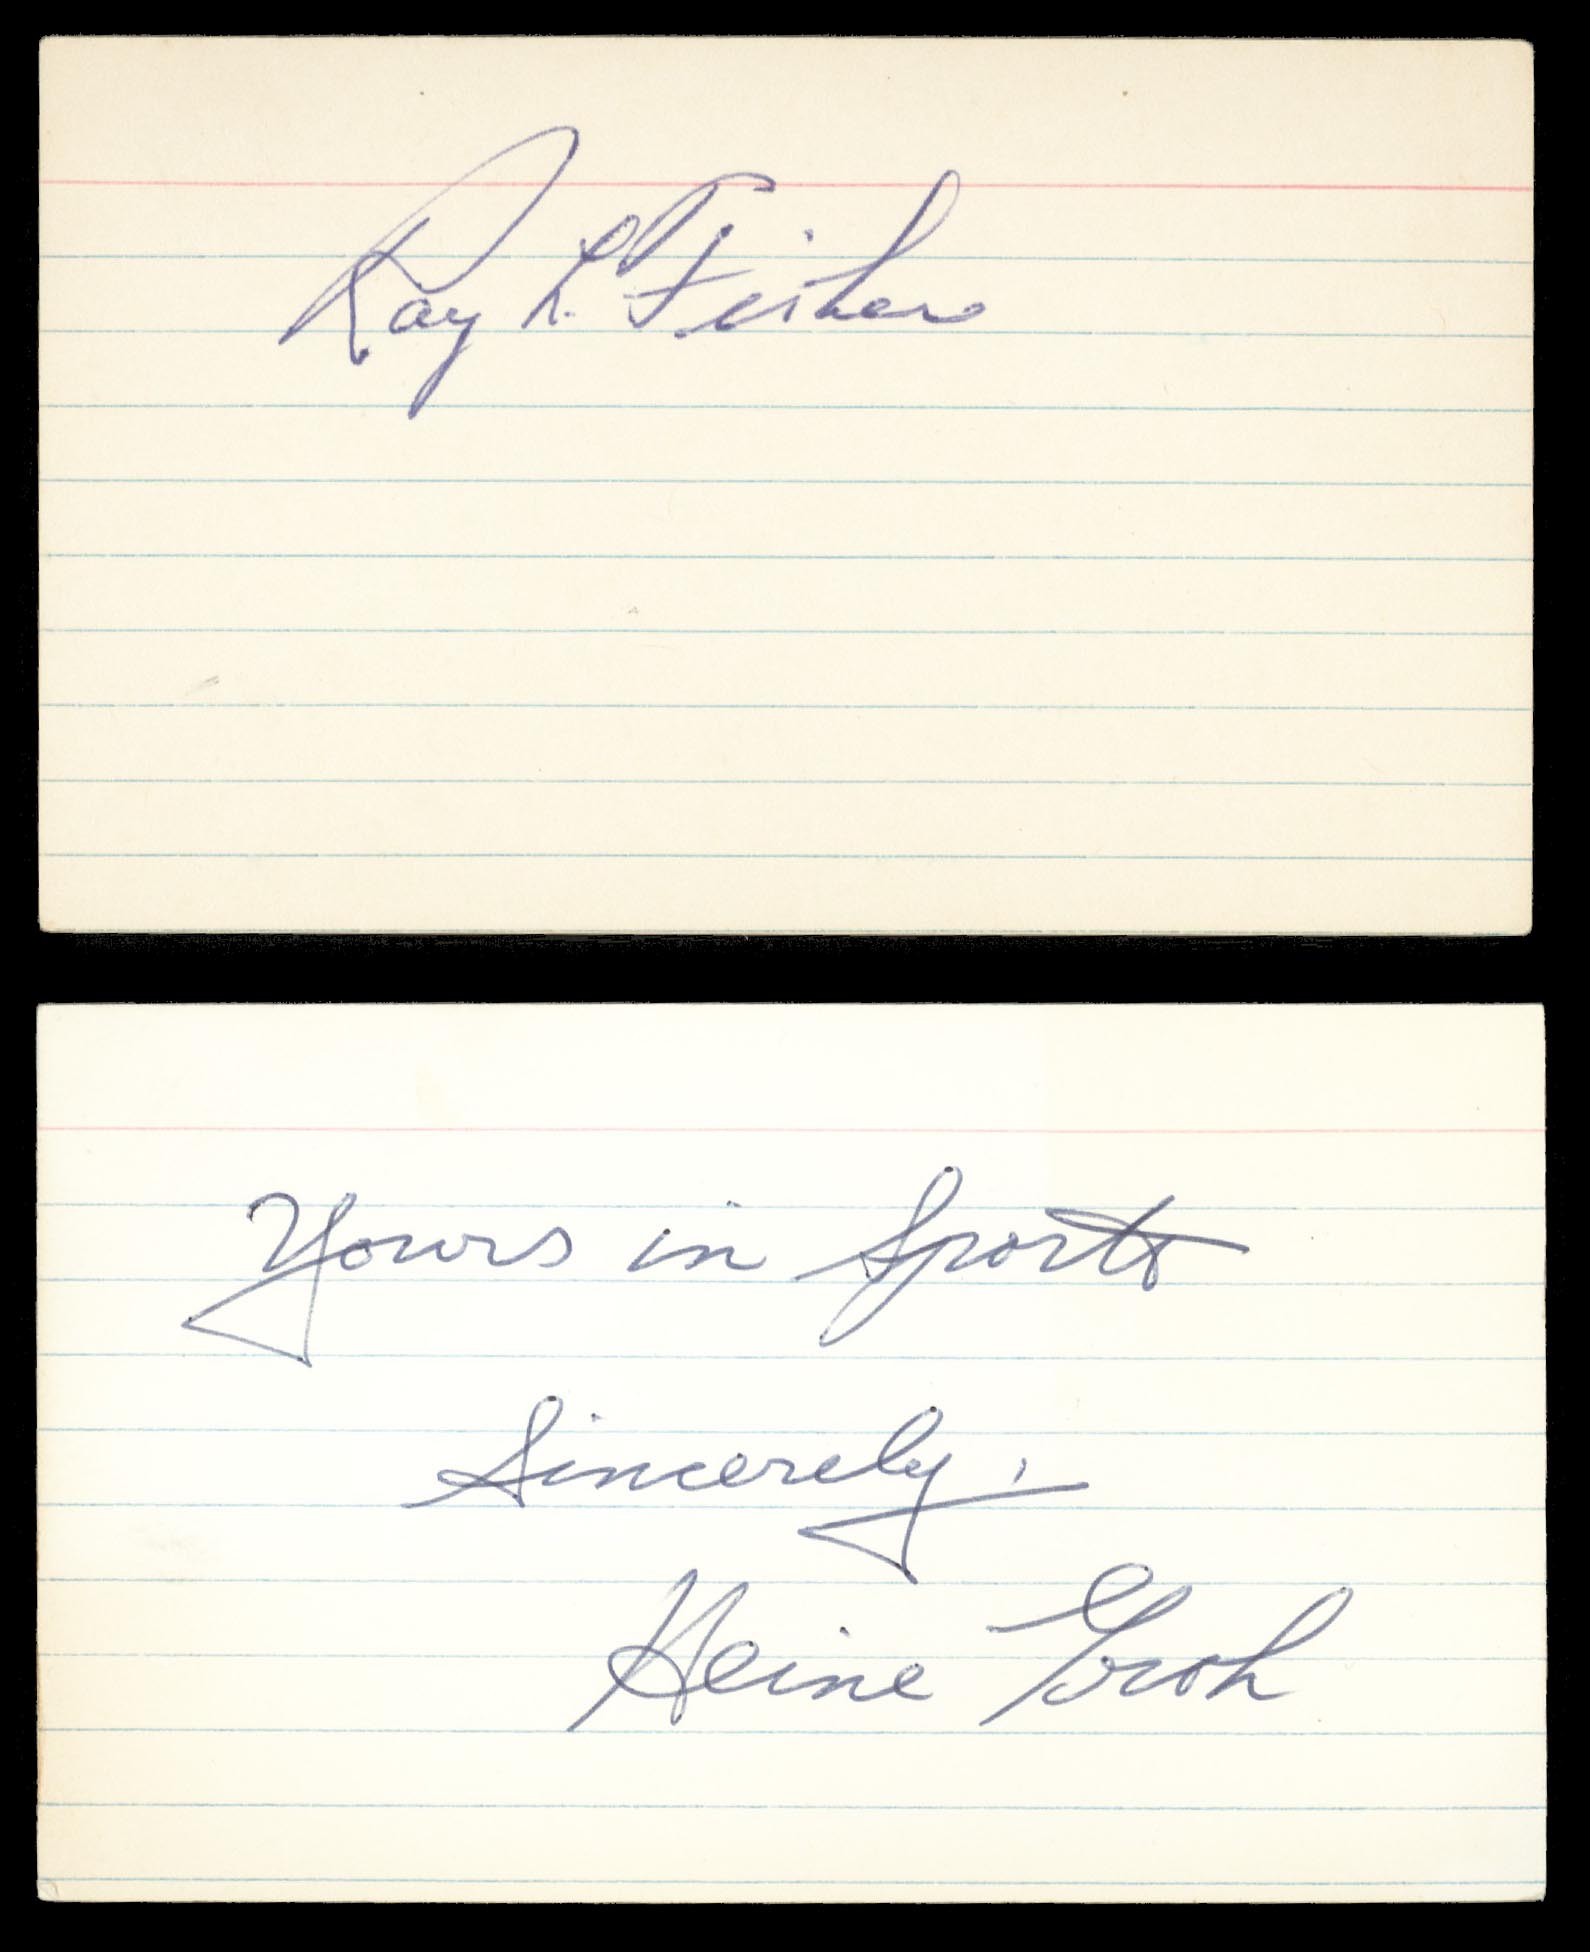 Ray L. Fisher
Yours in Sports
Sincerely,
Heine Groh